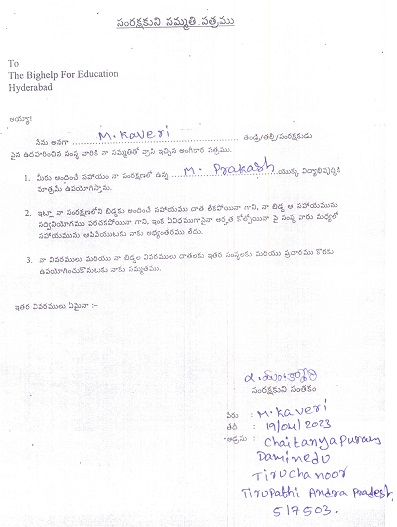 సంరక్షకుని సమ్మతి పత్రము
To
The Bighelp For Education
Hyderabad
అయ్యా!
నేను అనగా M. Kaveri తండ్రి/తల్లి/సంరక్షకుడు
పైన ఉదహరించిన సంస్థ వారికి నా సమ్మతితో వ్రాసి ఇచ్చిన అంగీకార పత్రము.
1. మీరు అందించే సహాయం నా సంరక్షణలో ఉన్న M. Prakash యొక్క విద్యాభివృద్ధికి
మాత్రమే ఉపయోగిస్తాను.
2. ఇట్లా నా సంరక్షణలోని బిడ్డకు అందించే సహాయము దాత లేకపోయినా గాని, నా బిడ్డ ఆ సహాయమును
సద్వినియోగము పరచకపోయినా గాని, ఇంక ఏవిధముగానైనా అర్హత కోల్పోయినా పై సంస్థ వారు మధ్యలో
సహాయమును ఆపివేయుటకు నాకు అభ్యంతరము లేదు.
3. నా వివరములు మరియు నా బిడ్డల వివరములు దాతలకు ఇతర సంస్థలకు మరియు ప్రచారము కొరకు
ఉపయోగించుకొనుటకు నాకు సమ్మతము.
ఇతర వివరములు ఏమైనా :-
సంరక్షకుని సంతకం
పేరు : M. Kaveri
తేదీ : 19/04/2023
అడ్రసు : Chaitanyapuram
Daminedu
Tiruchanoor
Tirupathi Andra Pradesh
517503.